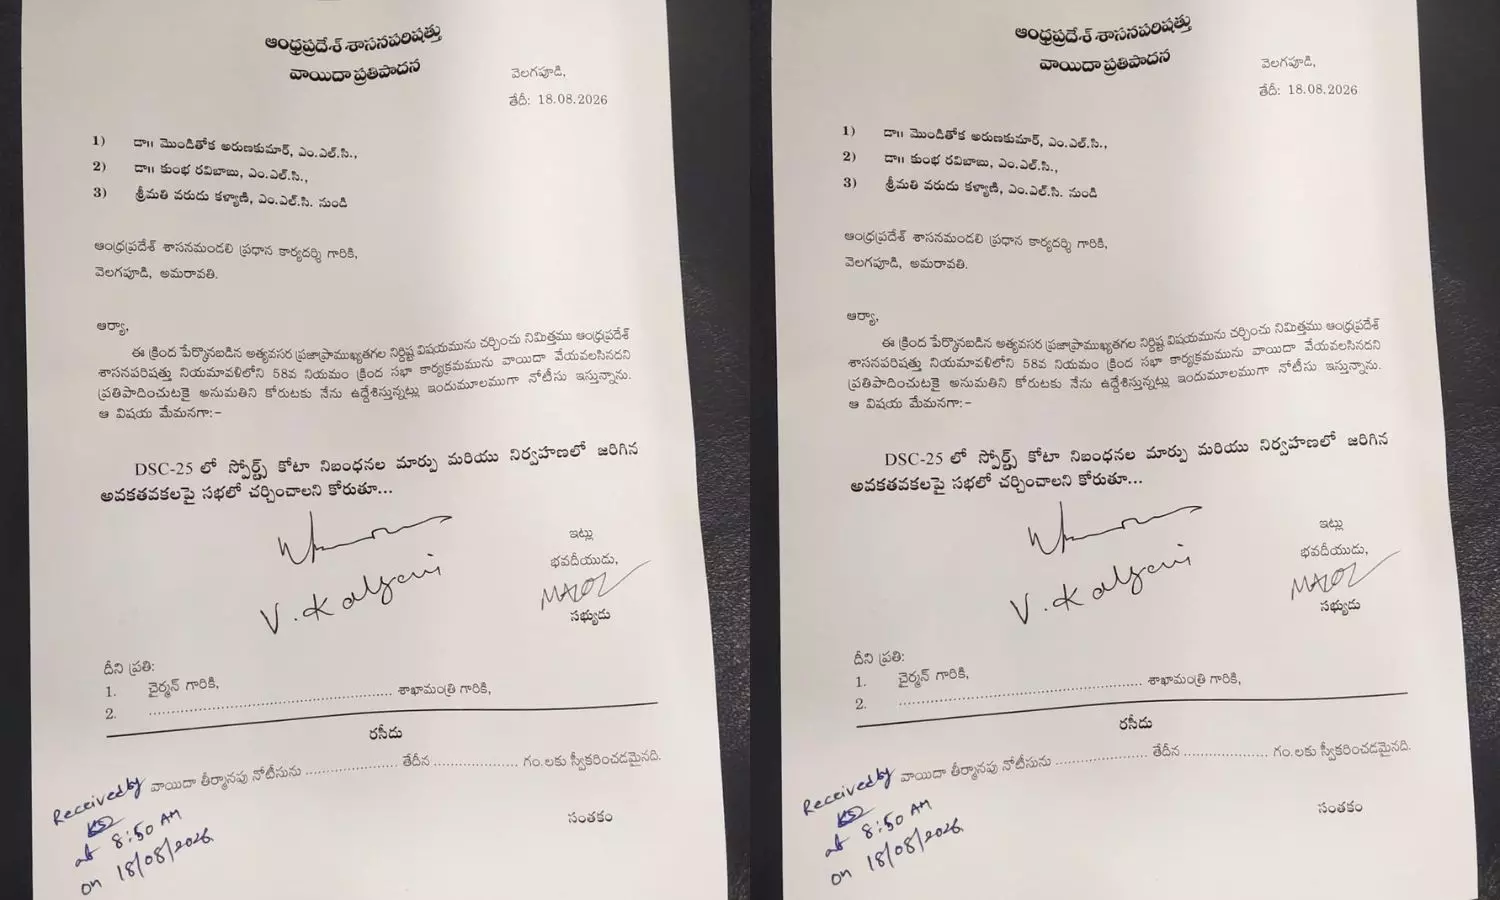 ఆంధ్రప్రదేశ్ శాసనపరిషత్తు
వాయిదా ప్రతిపాదన
వెలగపూడి,
తేదీ: 18.08.2026
1) డా॥ మొండితోక అరుణకుమార్, ఎం.ఎల్.సి.,
2) డా॥ కుంభ రవిబాబు, ఎం.ఎల్.సి.,
3) శ్రీమతి వరుదు కళ్యాణి, ఎం.ఎల్.సి. నుండి
ఆంధ్రప్రదేశ్ శాసనమండలి ప్రధాన కార్యదర్శి గారికి,
వెలగపూడి, అమరావతి.
ఆర్యా,
ఈ క్రింద పేర్కొనబడిన అత్యవసర ప్రజాప్రాముఖ్యతగల నిర్దిష్ట విషయమును చర్చించు నిమిత్తము ఆంధ్రప్రదేశ్
శాసనపరిషత్తు నియమావళిలోని 58వ నియమం క్రింద సభా కార్యక్రమమును వాయిదా వేయవలసినదని
ప్రతిపాదించుటకై అనుమతిని కోరుటకు నేను ఉద్దేశిస్తున్నట్లు ఇందుమూలముగా నోటీసు ఇస్తున్నాను.
ఆ విషయ మేమనగా:-
DSC-25 లో స్పోర్ట్స్ కోటా నిబంధనల మార్పు మరియు నిర్వహణలో జరిగిన
అవకతవకలపై సభలో చర్చించాలని కోరుతూ...
ఇట్లు
భవదీయుడు,
V. Kalyani
సభ్యుడు
దీని ప్రతి:
1. ఛైర్మన్ గారికి,
2. ........................................ శాఖామంత్రి గారికి,
రసీదు
Received by వాయిదా తీర్మానపు నోటీసును .................... తేదీన .................... గం.లకు స్వీకరించడమైనది.
at 8:50 AM
on 18/08/2026
సంతకం
ఆంధ్రప్రదేశ్ శాసనపరిషత్తు
వాయిదా ప్రతిపాదన
వెలగపూడి,
తేదీ: 18.08.2026
1) డా॥ మొండితోక అరుణకుమార్, ఎం.ఎల్.సి.,
2) డా॥ కుంభ రవిబాబు, ఎం.ఎల్.సి.,
3) శ్రీమతి వరుదు కళ్యాణి, ఎం.ఎల్.సి. నుండి
ఆంధ్రప్రదేశ్ శాసనమండలి ప్రధాన కార్యదర్శి గారికి,
వెలగపూడి, అమరావతి.
ఆర్యా,
ఈ క్రింద పేర్కొనబడిన అత్యవసర ప్రజాప్రాముఖ్యతగల నిర్దిష్ట విషయమును చర్చించు నిమిత్తము ఆంధ్రప్రదేశ్
శాసనపరిషత్తు నియమావళిలోని 58వ నియమం క్రింద సభా కార్యక్రమమును వాయిదా వేయవలసినదని
ప్రతిపాదించుటకై అనుమతిని కోరుటకు నేను ఉద్దేశిస్తున్నట్లు ఇందుమూలముగా నోటీసు ఇస్తున్నాను.
ఆ విషయ మేమనగా:-
DSC-25 లో స్పోర్ట్స్ కోటా నిబంధనల మార్పు మరియు నిర్వహణలో జరిగిన
అవకతవకలపై సభలో చర్చించాలని కోరుతూ...
ఇట్లు
భవదీయుడు,
V. Kalyani
సభ్యుడు
దీని ప్రతి:
1. ఛైర్మన్ గారికి,
2. ........................................ శాఖామంత్రి గారికి,
రసీదు
Received by వాయిదా తీర్మానపు నోటీసును .................... తేదీన .................... గం.లకు స్వీకరించడమైనది.
at 8:50 AM
on 18/08/2026
సంతకం